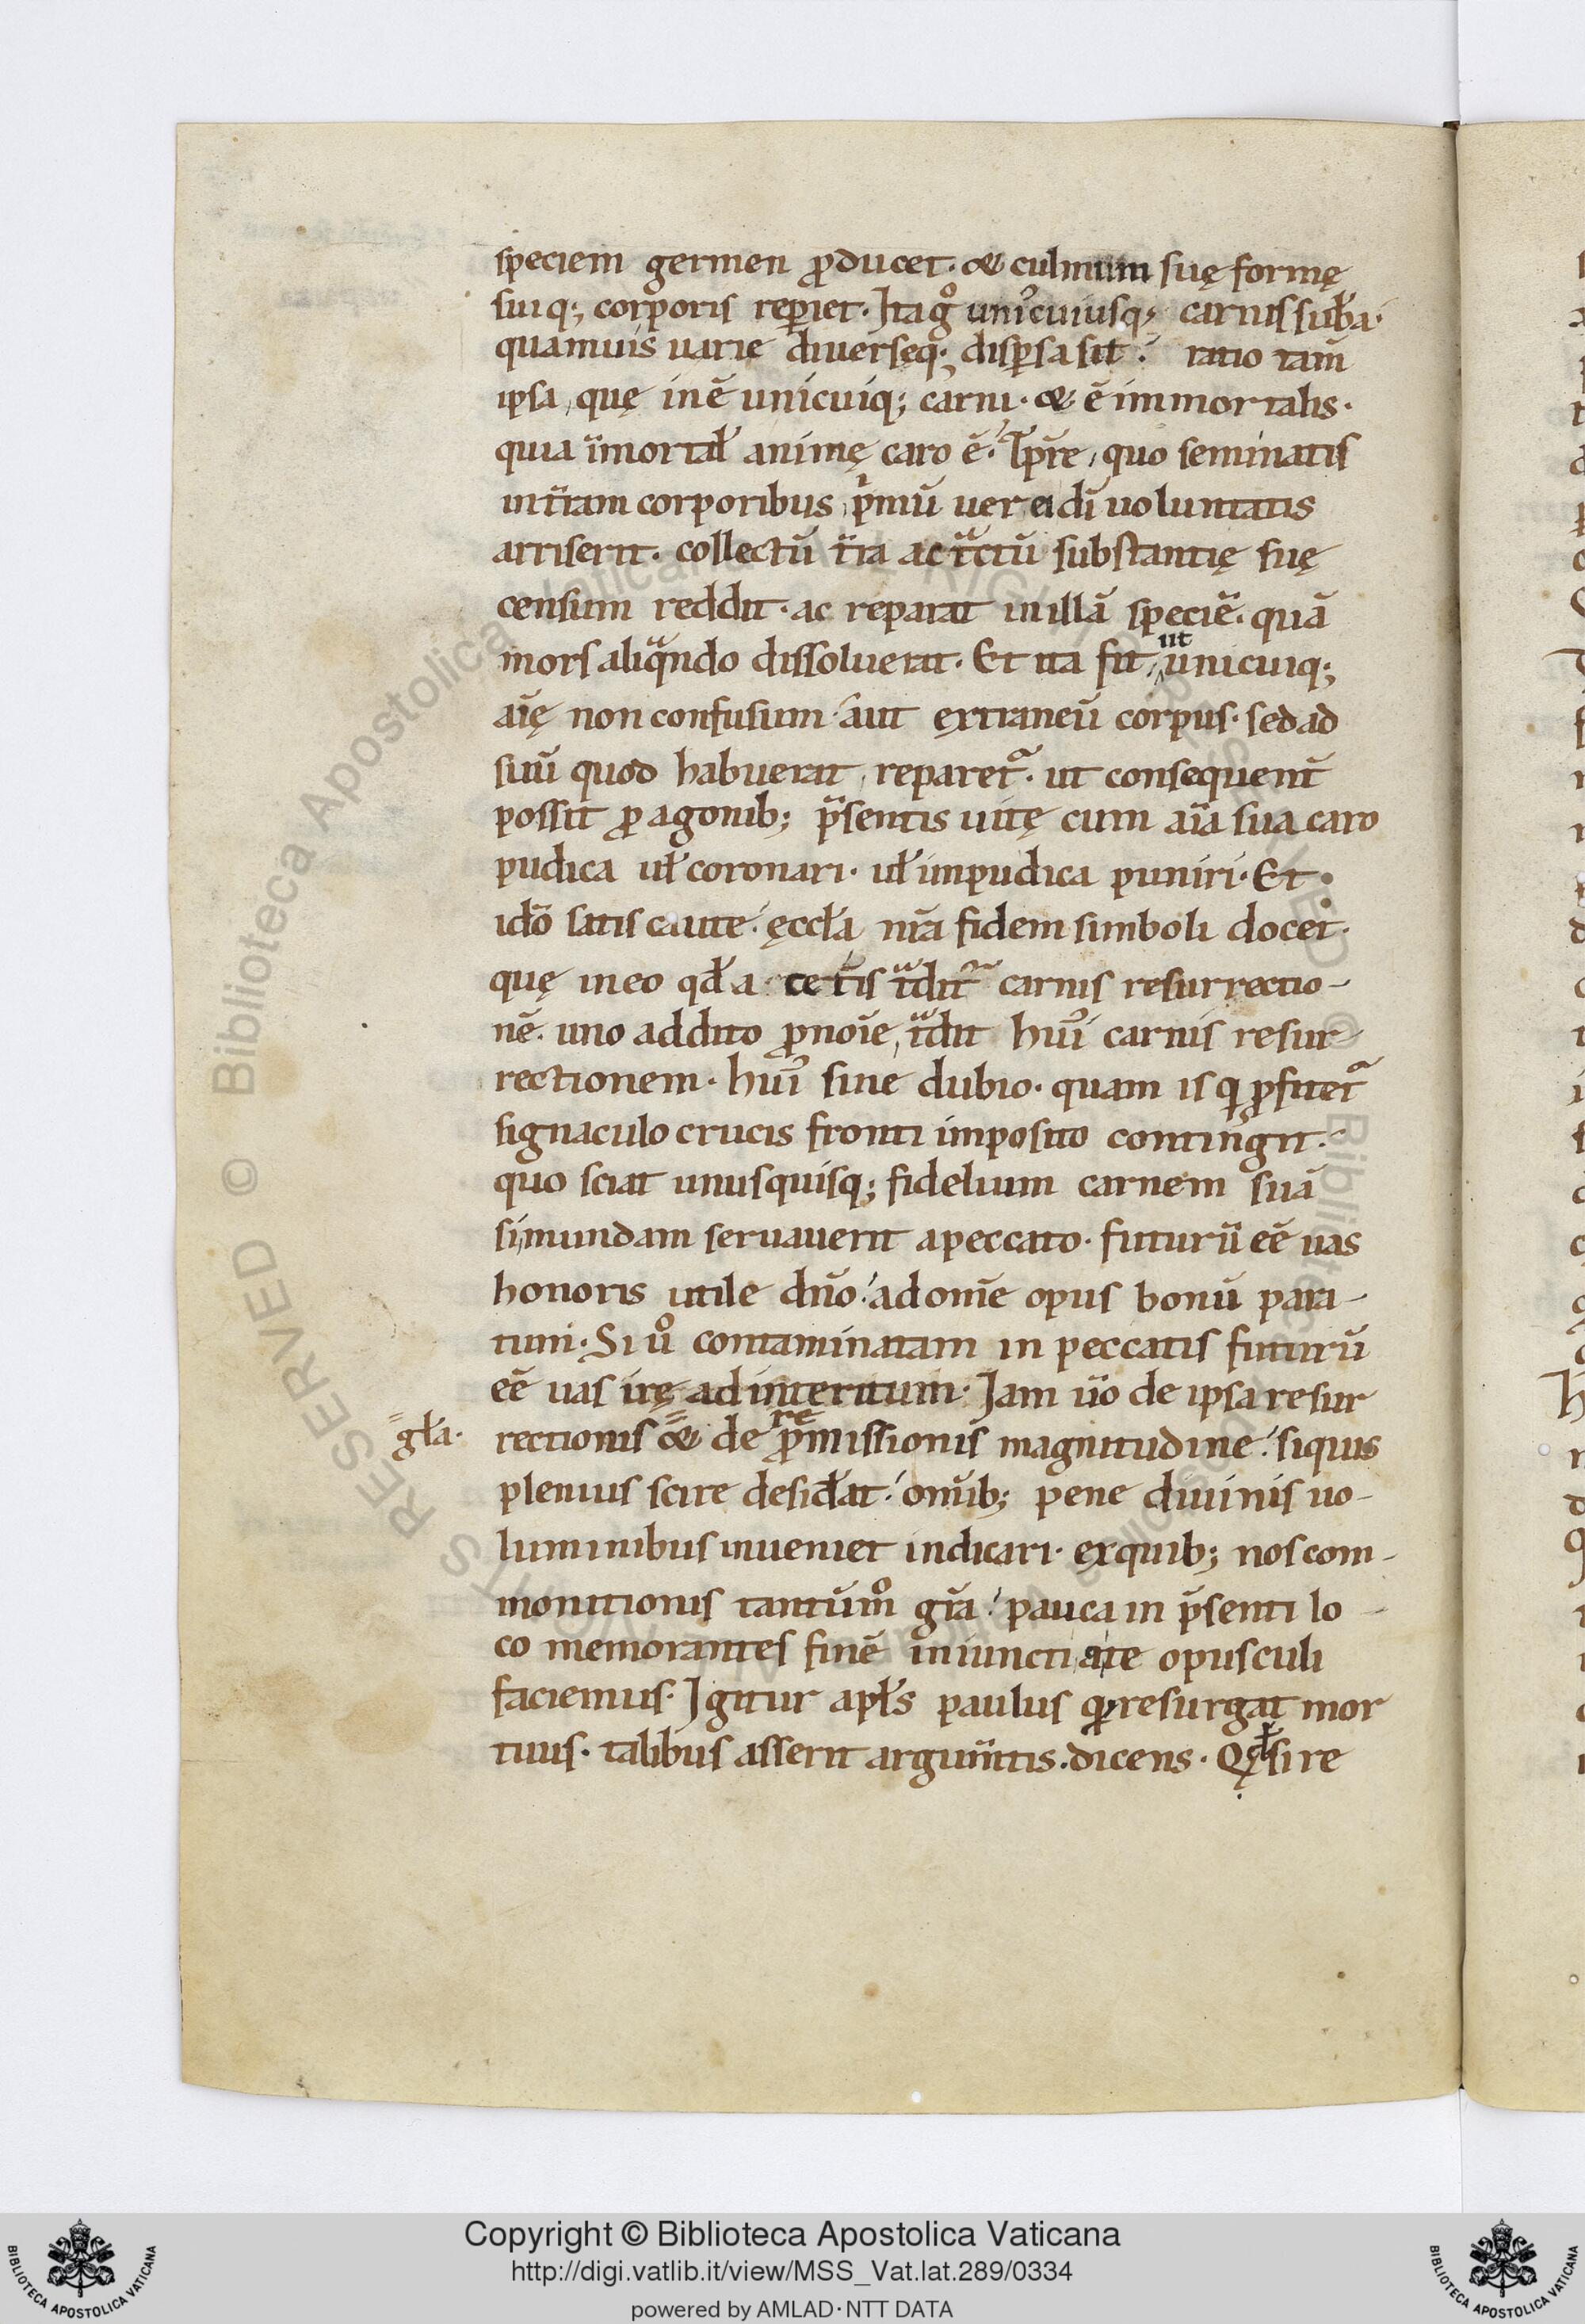 speciem germen ꝓducet· & culmum suę formę
suiq; corporis reperiet· Itagͦ unicuiusq; carnis subs̄ta·
quamuis uarie diuersęq; disꝑsa sit· ratio tam̄
ipsa, quę inē unicuiq; carni· & ē immortalis·
quia īmortał animę caro ē· quo seminatis
in t̄ram corporibus pⁱmū uer ei dī uoluntatis
arriserit· collectū t̄ra ac tᵃctū substantię suę
censum reddit· ac reparat in illā speciē· quā
mors aliqᵃndo dissoluerat· Et ita fit, ut unicuiq;
aīę non confusum aut ęxtraneū corpus· sed ad
suū quod habuerat, reparet᷑· ut consequent̄
possit ꝓ agonib; p̄sentis uitę cum aīa sua caro
pudica uł coronari· uł impudica puniri· Et
idō satis caute ęccła nr̄a fidem simboli docet·
quę in eo qđ a cet̄is tᵃdit᷑ carnis resurrectio-
nē· uno addito ꝓnoīe, tᵃdit hui᷒ carnis resur-
rectionem· hui᷒ sine dubio· quam is qⁱ ꝓfitet᷑
signaculo crucis fronti imposito contingit·
quo sciat unusquisq; fidelium carnem suā
si mundam seruauerit a peccato· futurū eē uas
honoris utile dn̄o ad om̄e opus bonū para-
tum· Si ůͦ contaminatam in peccatis futurū
eē uas irę ad interitum· Iam ūo de ipsa resur
gła·
rectionis & de ꝓre missionis magnitudine siquis
plenius scire desiđat om̄ib; pene diuinis uo-
luminibus inueniet indicari· exquib; nos com-
monitionis tantūmͦ gr̄a pauca in p̄senti lo-
co memorantes finē iniuncti a te opusculi
faciemus· Igitur apłs paulus qd resurgat mor
tuus· talibus asserit argum̄tis· dicens· Qđ si re
Copyright © Biblioteca Apostolica Vaticana
http://digi.vatlib.it/view/MSS_Vat.lat.289/0334
powered by AMLAD·NTT DATA